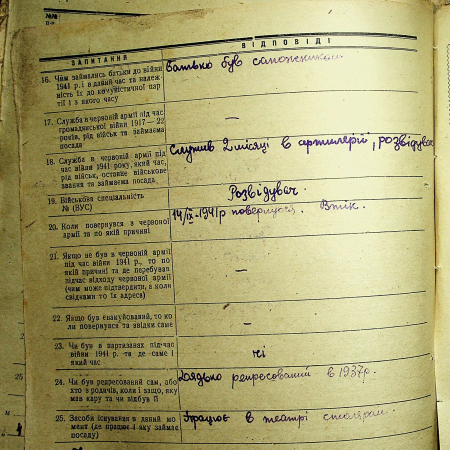 №№
п-п
ЗАПИТАННЯ
ВІДПОВІДІ
16. Чим займались батьки до війни
1941 р. і в даний час та належ-
ність їх до комуністичної пар-
тії і з якого часу
Батько був сапожником.
17. Служба в червоній армії під час
громадянської війни 1917—22
років, рід військ та займаєма
посада
—
18. Служба в червоній армії під
час війни 1941 року, який час,
рід військ, останнє військове
звання та займаєма посада
Служив 2 місяці в артилерії, розвідувач
19. Військова спеціальність
№ (ВУС)
Розвідувач.
20. Коли повернувся з червоної
армії та по якій причині
14/ІХ-1941р повернувсь. Втік.
21. Якщо не був в червоній армії
під час війни 1941 р., то по
якій причині та де перебував
підчас відходу червоної армії
(чим може підтвердити, а коли
свідками то їх адреса)
—
22. Якщо був евакуйований, то ко-
ли повернувся та звідки саме
—
23. Чи був в партизанах під-час
війни 1941 р. та де саме і
який час
ні
24. Чи був репресований сам, або
хто з родичів, коли і защо, яку
мав кару та чи відбув її
Дядько репресований в 1937р.
25. Засоби існування в даний мо-
мент (де працює і яку займає
посаду)
Працює в театрі столяром.